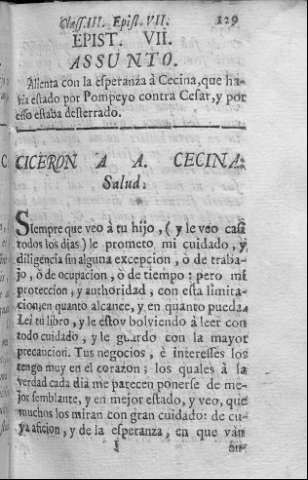 Class. III. Epist. VII. 129
EPIST. VII.
ASSUNTO.
Alienta con la esperanza à Cecina, que ha-
via estado por Pompeyo contra Cesar, y por
esso estaba desterrado.
CICERON A A. CECINA:
Salud.
Siempre que veo à tu hijo, ( y le veo casi
todos los dias) le prometo mi cuidado, y
diligencia sin alguna excepcion, ò de traba-
jo, ò de ocupacion, ò de tiempo: pero mi
proteccion, y authoridad, con esta limita-
cion; en quanto alcance, y en quanto pueda.
Leì tu libro, y le estoy bolviendo à leer con
todo cuidado, y le guardo con la mayor
precaucion. Tus negocios, è interesses los
tengo muy en el corazon; los quales à la
verdad cada dia me parecen ponerse de me-
jor semblante, y en mejor estado, y veo, que
muchos los miran con gran cuidado: de cu-
ya aficion, y de la esperanza, en que van
I